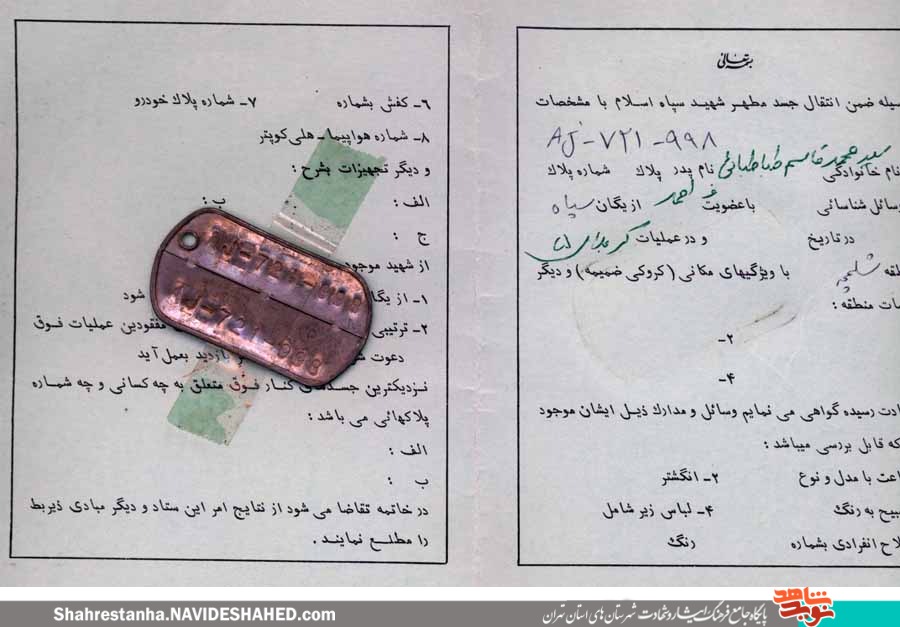 بسمه تعالی
سیله ضمن انتقال جسد مطهر شهید سپاه اسلام با مشخصات
AJ-۷۲۱-۹۹۸
سید محمد قاسم طباطبائی
نام خانوادگی نام پدر پلاک شماره پلاک
وسائل شناسائی با عضویت از یگان سپاه
در تاریخ و در عملیات کربلای ۵
طقه شلمچه با ویژگیهای مکانی (کروکی ضمیمه) و دیگر
ات منطقه :
۲-
۴-
ادت رسیده گواهی می نمایم وسائل و مدارك ذیل ایشان موجود
که قابل بررسی میباشد :
اعت با مدل و نوع ۲- انگشتر
سبیح به رنگ ۴- لباس زیر شامل
لاح انفرادی بشماره رنگ
۶- کفش بشماره ۷- شماره پلاك خودرو
۸- شماره هواپیما - هلی کوپتر
و دیگر تجهیزات بشرح :
الف : ب :
ج :
از شهید موجود
۱- از یگا شود
۲- ترتیبی مفقودین عملیات فوق
دعوت بازدید بعمل آید
نزدیکترین جسدهای کنار فوق متعلق به چه کسانی و چه شماره
پلاکهائی می باشد :
الف :
ب :
در خاتمه تقاضا می شود از نتایج امر این ستاد و دیگر مبادی ذیربط
را مطلع نمایند .
Shahrestanha.NAVIDESHAHED.com
پایگاه جامع فرهنگ ایثار و شهادت شهرستان های استان تهران
نوید شاهد